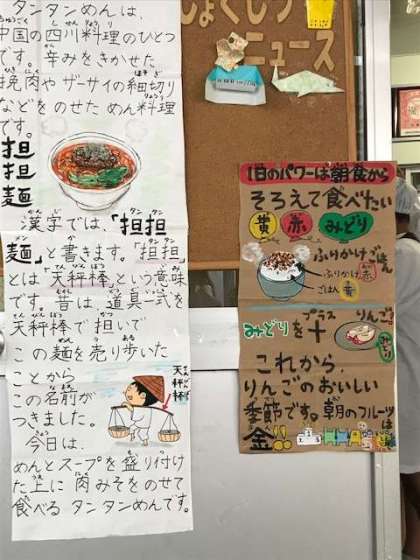 タンタンめんは、
中国の四川料理のひとつ
です。辛みをきかせた
挽肉やザーサイの細切り
などをのせためん料理
です。
担
担
麺
漢字では、「担担
麺」と書きます。「担担」
とは「天秤棒」という意味
です。昔は道具一式を
天秤棒で担いで
この麺を売り歩いた
ことから
この名前が
つきました。
天秤棒
今日は、
めんとスープを盛り付け
た上に肉みそをのせて
食べるタンタンめんです。
しょくしつ
ニュース
1日のパワーは朝食から
そろえて食べたい
黄 赤 みどり
ふりかけごはん
ふりかけ 赤
ごはん 黄
みどりを プラス + りんご?
みどり
これから、
りんごのおいしい
季節です。朝のフルーツは
金!!